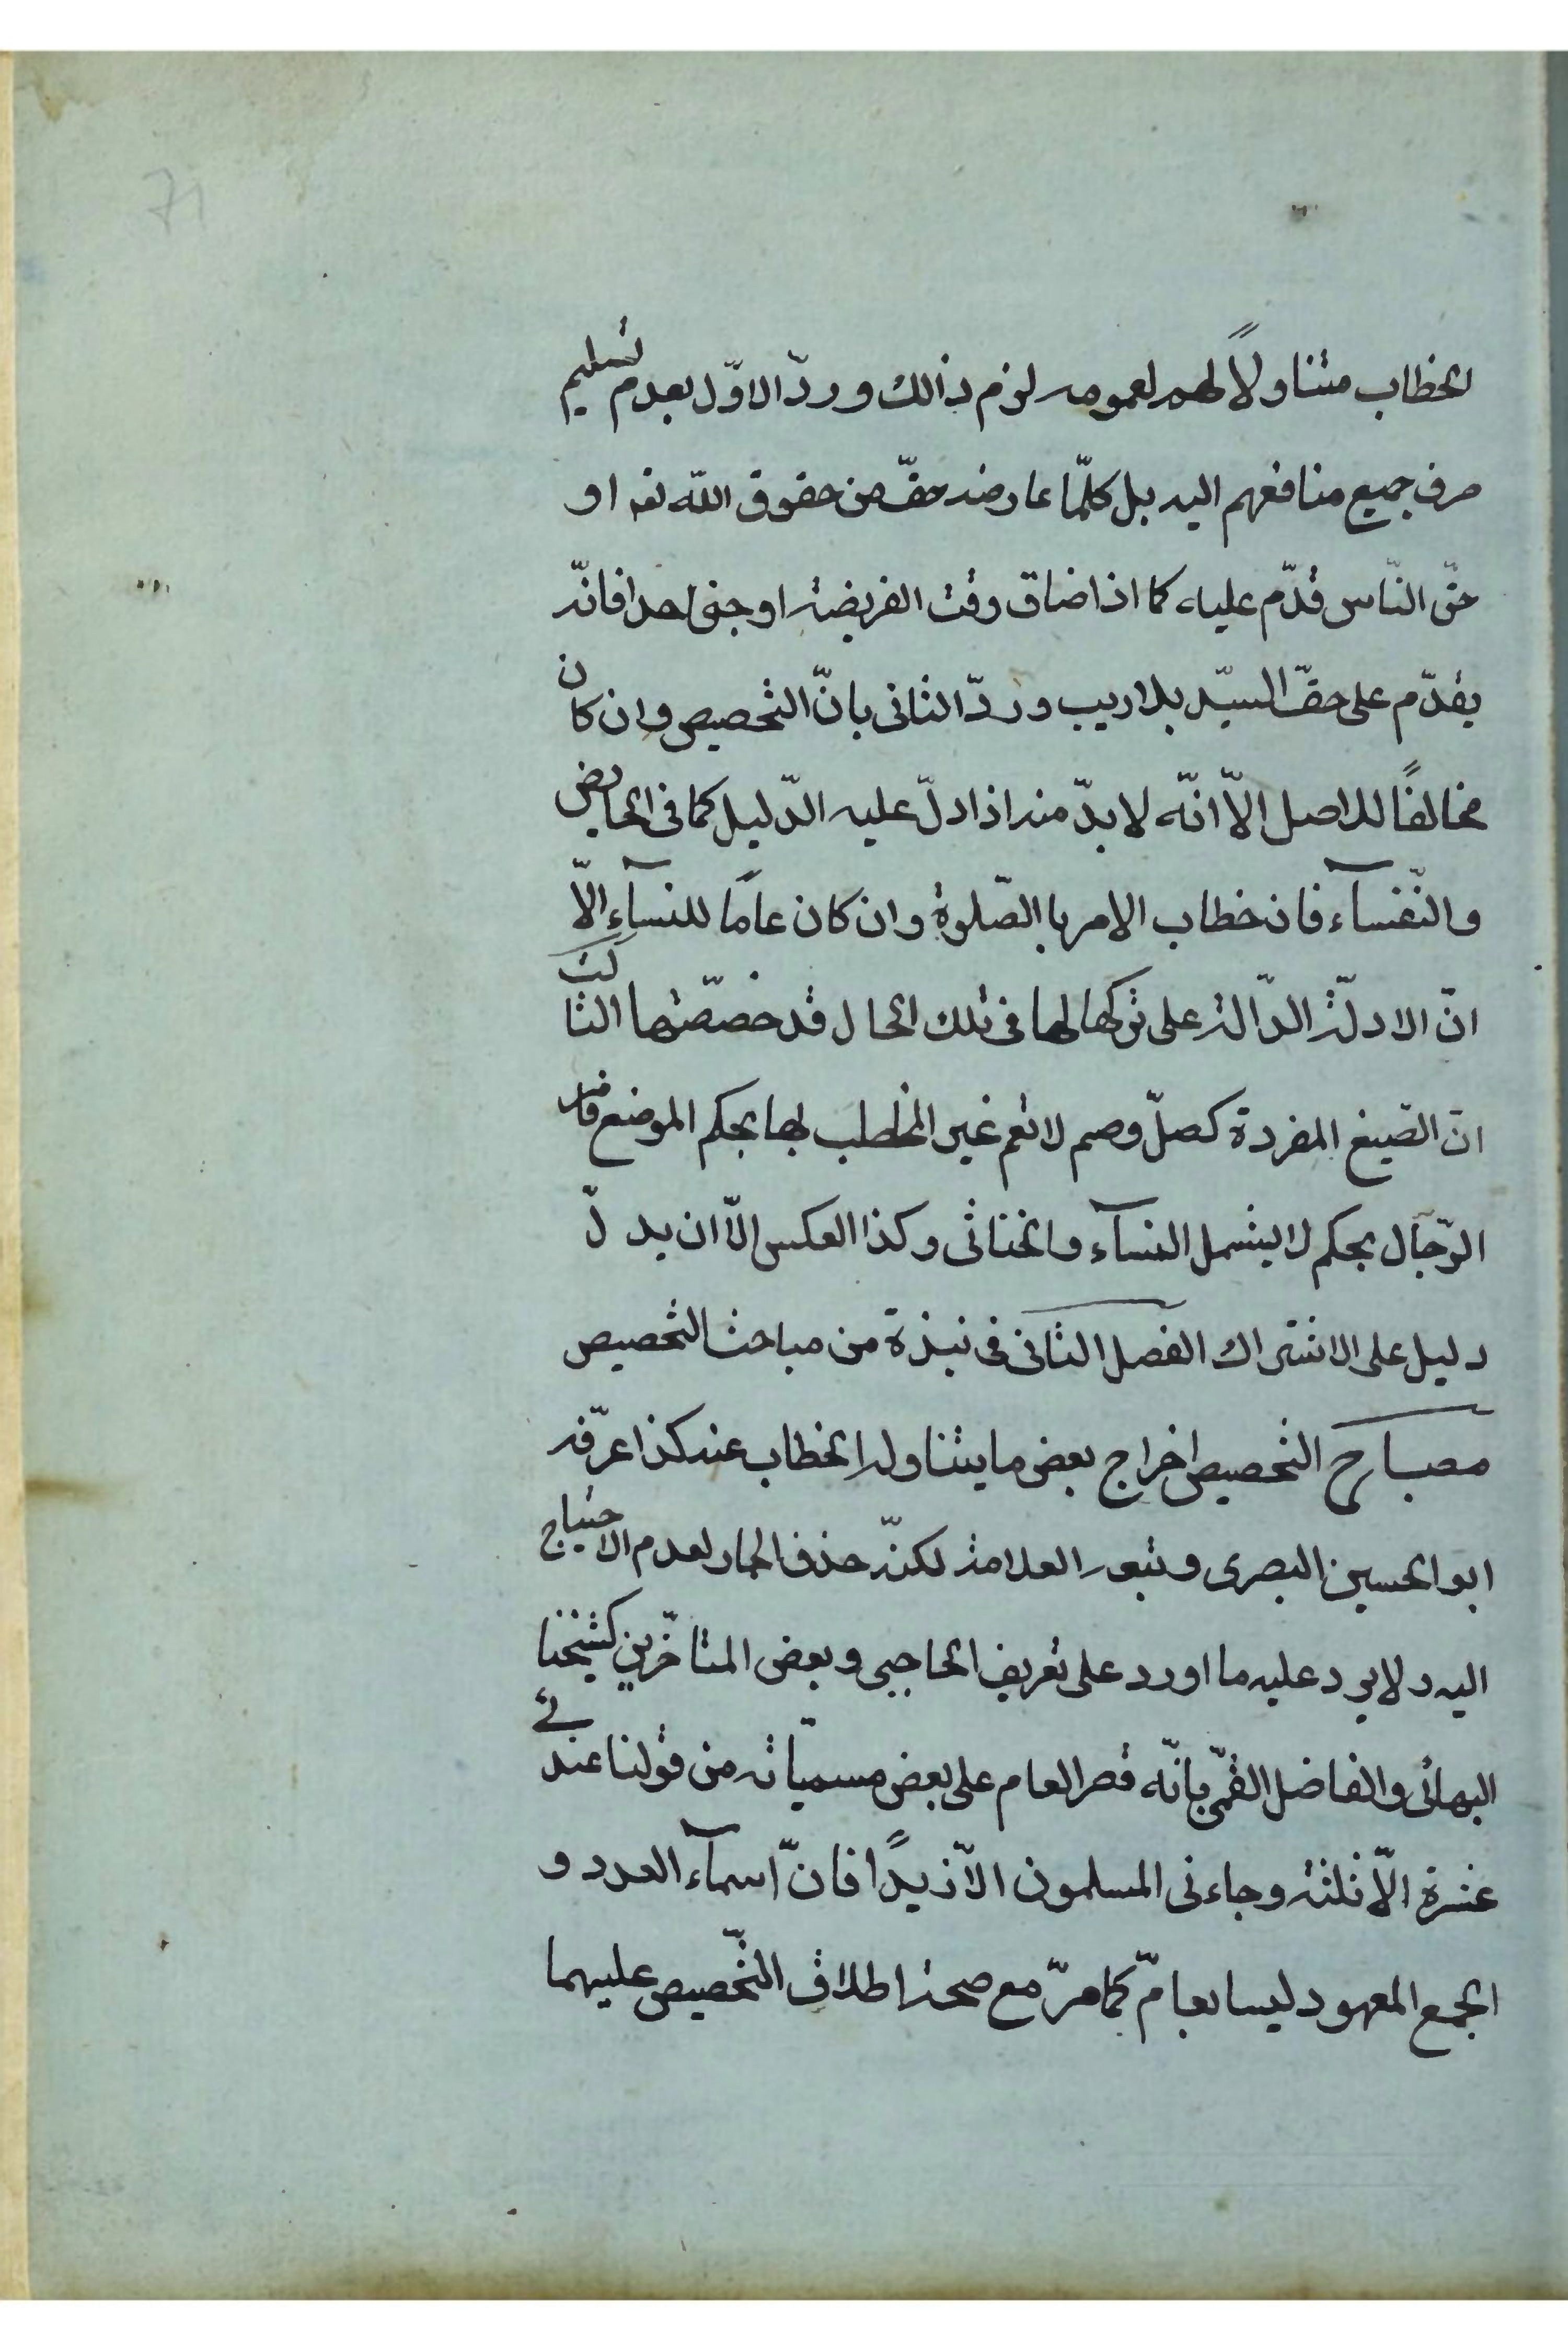 71
الخطاب متناولًا لهم لعمومه لزم ذالك وردّ الاوّل بعدم تسليم
صرف جميع منافعهم اليه بل كلّما عارضه حقّ من حقوق اللّه تعه او
حقّ النّاس قدّم عليه كما اذا ضاق وقت الفريضة او جنى احدا فانّه
يقدّم على حقّ السيّد بلا ريب وردّ الثانى بانّ التخصيص وان كان
مخالفًا للاصل الاّ انّه لا بدّ منه اذا دلّ عليه الدّليل كما فى الحايض
والنّفسآء فان خطاب الامر با الصّلوة وان كان عامًا للنسآء الاّ
انّ الادلّة الدّالة على تركها لهما فى تلك الحال قد خصّصتهما الثالث
انّ الصّيغ المفردة كصلّ وصم لا تعم غير المخاطب بها بحكم الموضع فامر
الرّجال بحكم لا يشمل النسآء والخناثى وكذا العكس الاّ ان يدلّ
دليل على الاشتراك الفصل الثانى فى نبذة من مباحث التخصيص
مصباح التخصيص اخراج بعض ما يتناوله الخطاب عنه كذا عرّفه
ابو الحسين البصرى وتبعه العلامة لكنّه حذف الجار لعدم الاحتياج
اليه ولا يرد عليه ما اورد على تعريف الحاجبى وبعض المتاخّرين كشيخنا
البهائى والفاضل القمّى بانّه قصر العام على بعض مسميّاته من قولنا عندى
عشرة الاّ ثلثة وجاءنى المسلمون الاّ زيدًا فانّ اسمآء العدد و
الجمع المعهود ليسا بعامّ كما مرّ مع صحة اطلاق التّخصيص عليهما